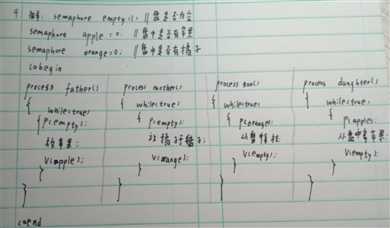 semaphore empty=1; //盘是否为空
semaphore apple=0; //盘中是否有苹果
semaphore orange=0; //盘中是否有橘子
cobegin
process father() process mother() process son() process daughter()
{ { { {
while(true) while(true) while(true) while(true)
{ p(empty); { p(empty); { p(orange); { p(apple);
放苹果; 从盘中 从盘中拿苹果
v(apple); v(orange); v(empty); v(empty);
} } } }
} } } }
coend